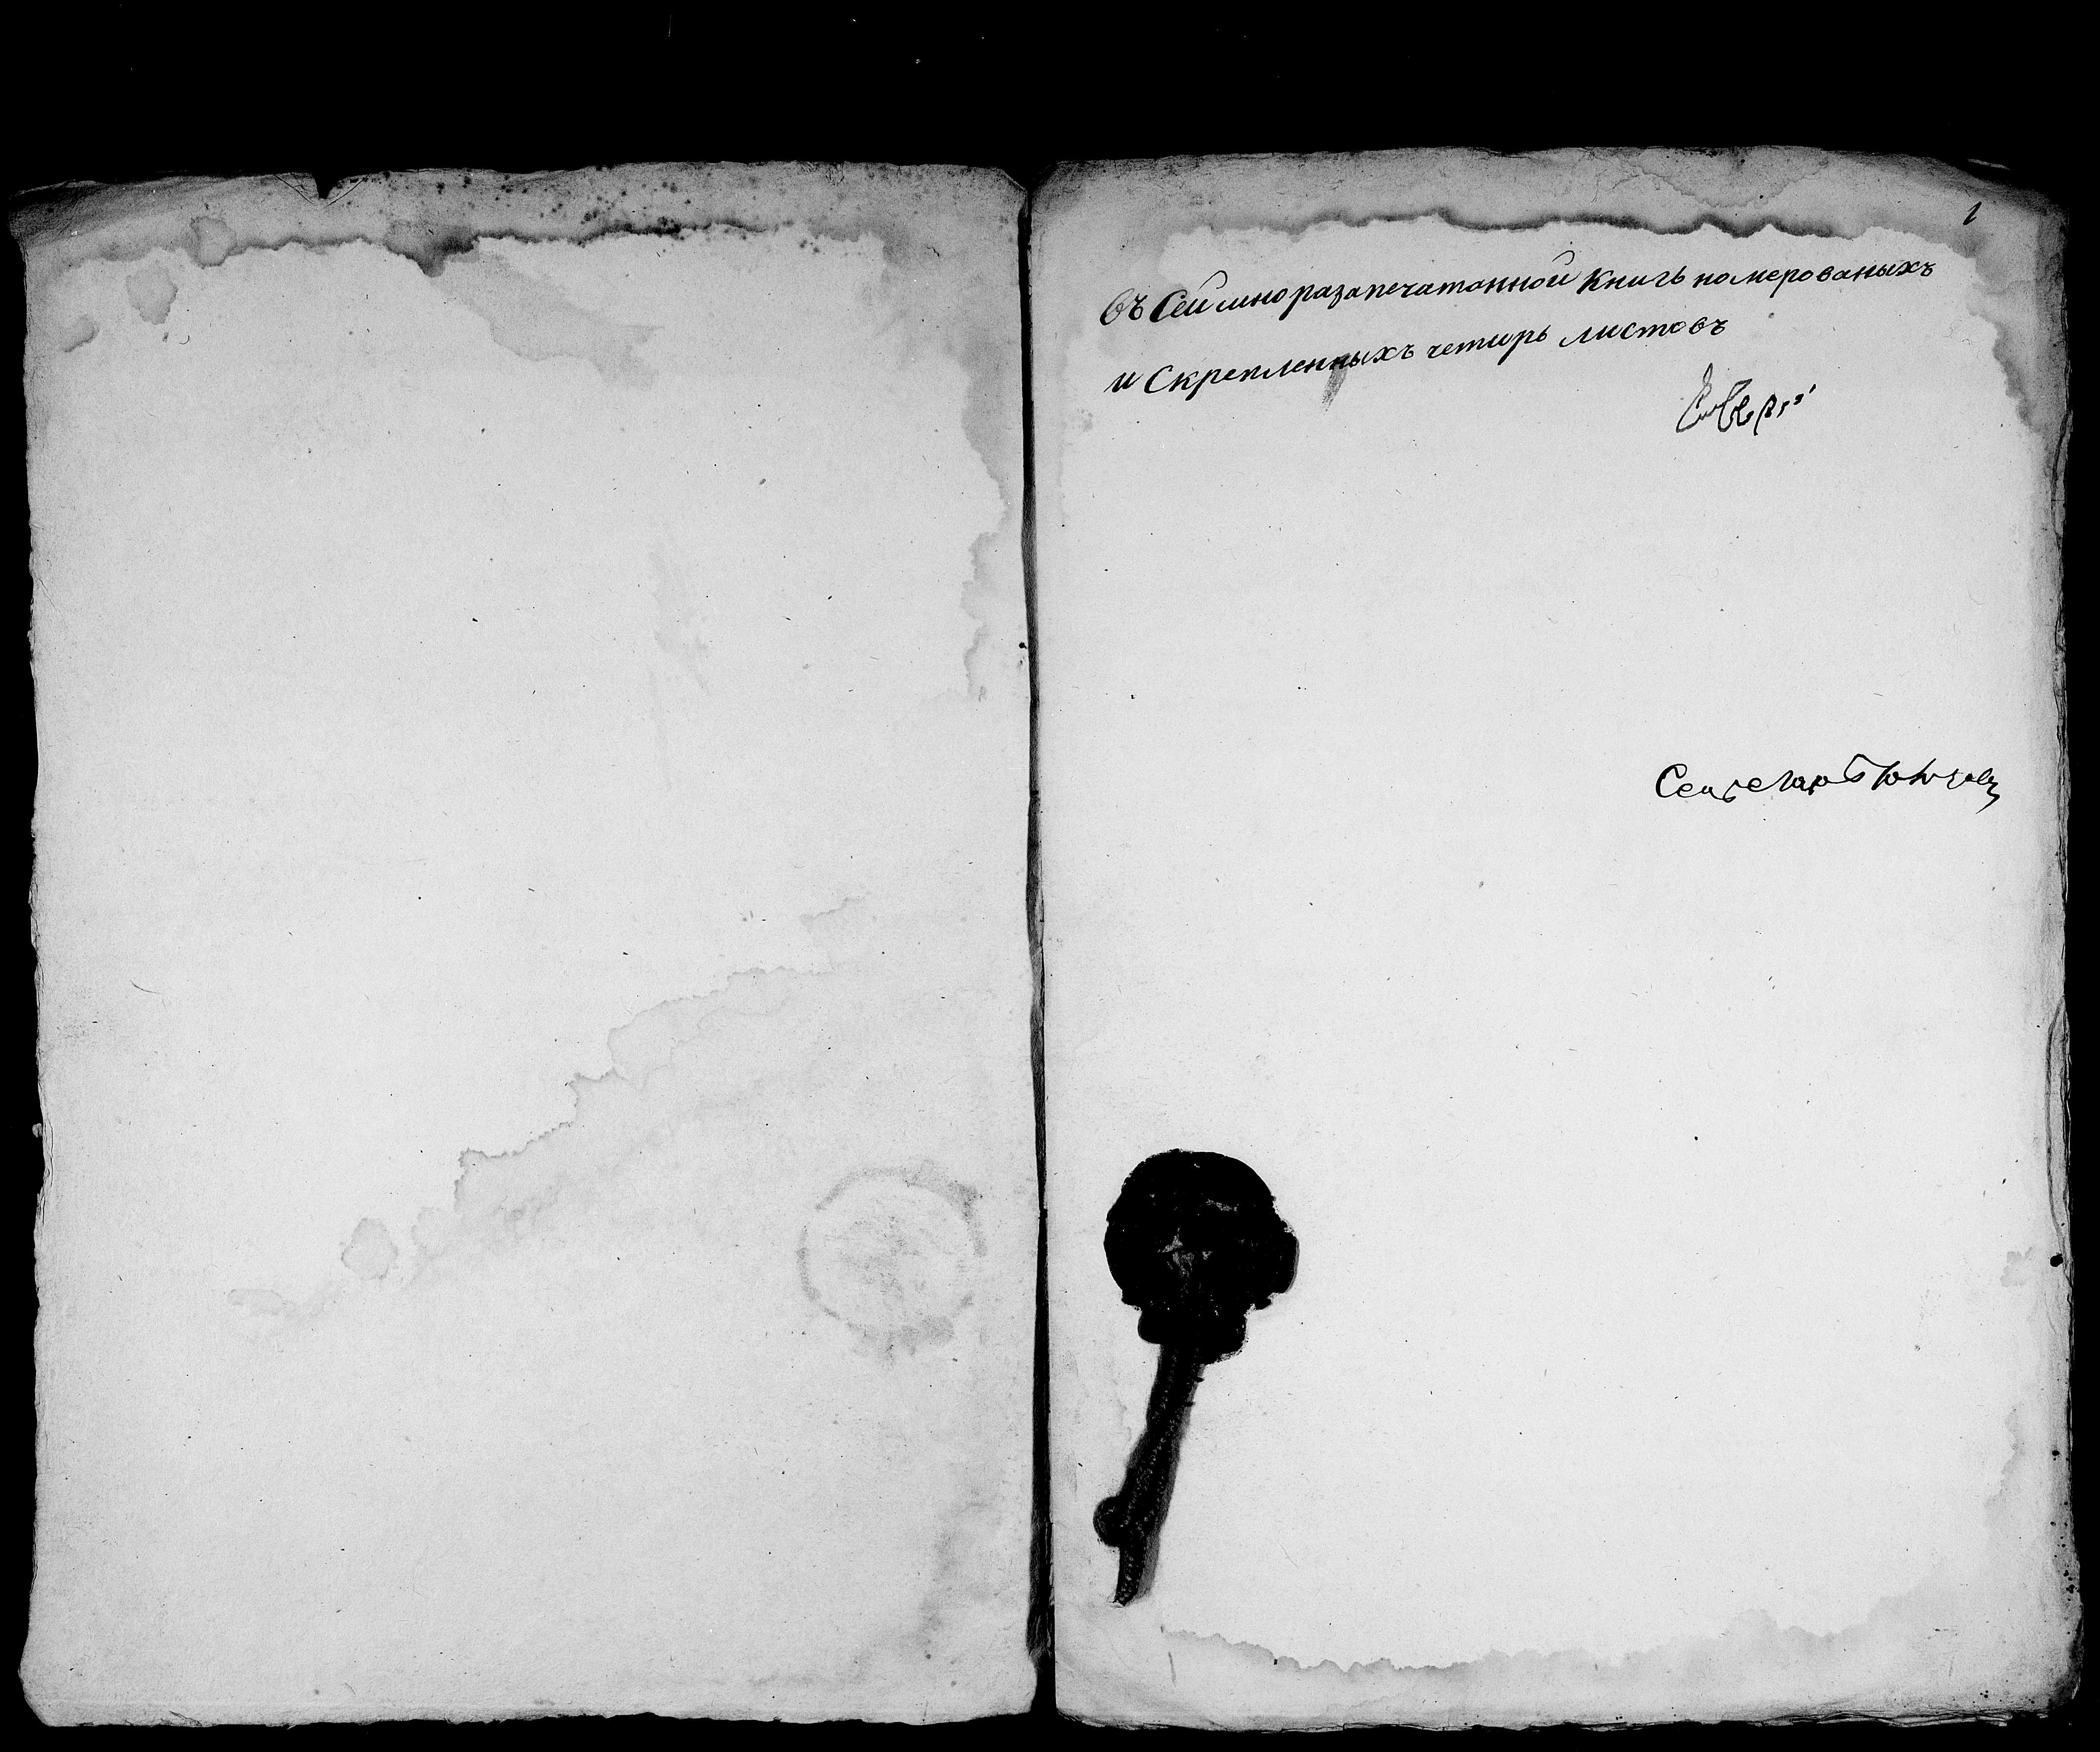 1
Въ Сей шноразапечатанной Книгъ номерованыхъ
и Скрепленныхъ четирь листовъ